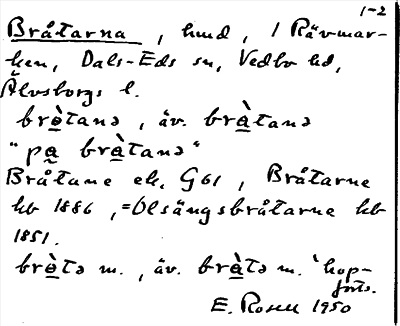 1-2
Bråtarna, hmd, i Rävmar-
ken, Dals-Eds sn, Vedbo hd,
Älvsborgs l.
brò̱tanə, äv. brà̱tanə
"pa̱ brà̱tanə"
Bråtane ek. G61, Bråtarne
hb 1886, =Olsängsbråtarne hb
1851.
brò̱tə m., äv. brà̱tə m. 'hop-
forts.
E. Rosell 1950